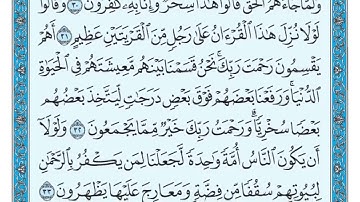 وَلَمَّا جَآءَهُمُ ٱلْحَقُّ قَالُوا۟ هَٰذَا سِحْرٌ وَإِنَّا بِهِۦ كَٰفِرُونَ ٣٠ وَقَالُوا۟
لَوْلَا نُزِّلَ هَٰذَا ٱلْقُرْءَانُ عَلَىٰ رَجُلٍ مِّنَ ٱلْقَرْيَتَيْنِ عَظِيمٍ ٣١ أَهُمْ
يَقْسِمُونَ رَحْمَتَ رَبِّكَ ۚ نَحْنُ قَسَمْنَا بَيْنَهُم مَّعِيشَتَهُمْ فِى ٱلْحَيَوٰةِ
ٱلدُّنْيَا ۚ وَرَفَعْنَا بَعْضَهُمْ فَوْقَ بَعْضٍ دَرَجَٰتٍ لِّيَتَّخِذَ بَعْضُهُم
بَعْضًا سُخْرِيًّا ۗ وَرَحْمَتُ رَبِّكَ خَيْرٌ مِّمَّا يَجْمَعُونَ ٣٢ وَلَوْلَآ
أَن يَكُونَ ٱلنَّاسُ أُمَّةً وَٰحِدَةً لَّجَعَلْنَا لِمَن يَكْفُرُ بِٱلرَّحْمَٰنِ
لِبُيُوتِهِمْ سُقُفًا مِّن فِضَّةٍ وَمَعَارِجَ عَلَيْهَا يَظْهَرُونَ ٣٣